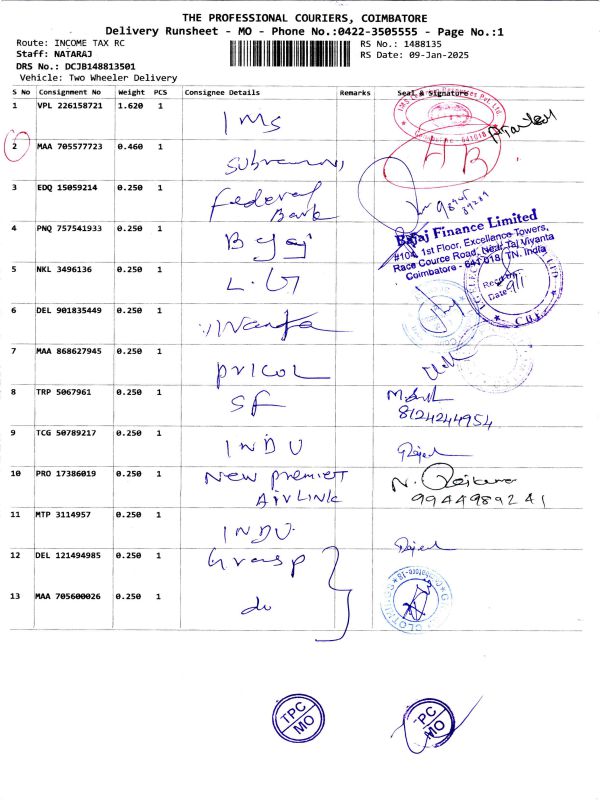 THE PROFESSIONAL COURIERS, COIMBATORE
Delivery Runsheet - MO - Phone No.:0422-3505555 - Page No.:1
Route: INCOME TAX RC RS No.: 1488135
Staff: NATARAJ RS Date: 09-Jan-2025
DRS No.: DCJB148813501
Vehicle: Two Wheeler Delivery
S No Consignment No Weight PCS Consignee Details Remarks Seal & Signature
1 VPL 226158721 1.620 1 IMS
2 MAA 705577723 0.460 1
3 EDQ 15059214 0.250 1 Federal Bank
4 PNQ 757541933 0.250 1 Bajaj
Bajaj Finance Limited
#104, 1st Floor, Excellence Towers,
Race Cource Road, Near Taj Viyanta
Coimbatore - 641 018, TN. India
5 NKL 3496136 0.250 1 L.G
6 DEL 901835449 0.250 1
7 MAA 868627945 0.250 1 PRICOL
8 TRP 5067961 0.250 1 SF
8124244954
9 TCG 50789217 0.250 1 INDU
10 PRO 17386019 0.250 1 New Premier AirLINK
9944989241
11 MTP 3114957 0.250 1 INDU
12 DEL 121494985 0.250 1 Grasp
13 MAA 705600026 0.250 1 do
TPC MO
TPC MO